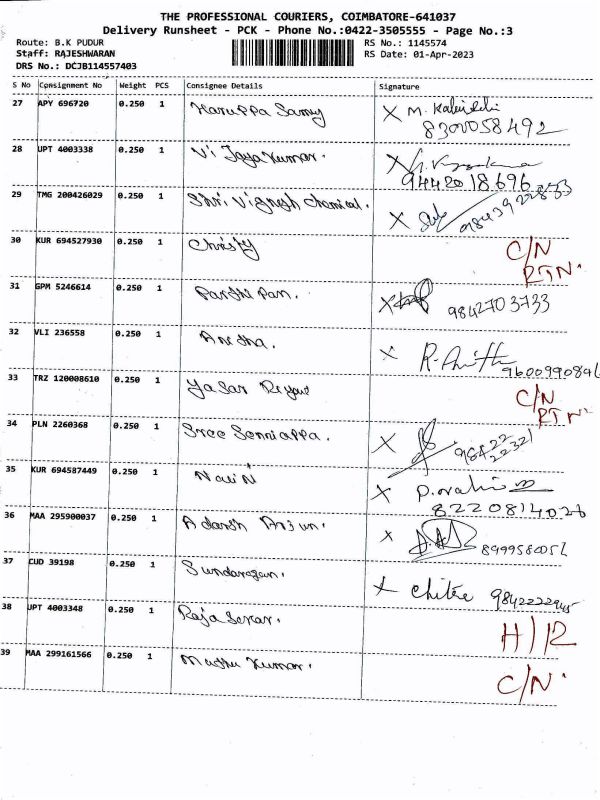 THE PROFESSIONAL COURIERS, COIMBATORE-641037
Delivery Runsheet - PCK - Phone No.:0422-3505555 - Page No.:3
Route: B.K PUDUR RS No.: 1145574
Staff: RAJESHWARAN RS Date: 01-Apr-2023
DRS No.: DCJB114557403
S No Consignment No Weight PCS Consignee Details Signature
27 APY 696720 0.250 1 Karuppa Samy X M.
8300058492
28 UPT 4003338 0.250 1 Vi Jaya Kumar.
9442018696
29 TMG 200426029 0.250 1 Shri. Vignesh Chemical. X
30 KUR 694527930 0.250 1 Christy C/N
RTN.
31 GPM 5246614 0.250 1 Parthi Pan. X 9842703733
32 VLI 236558 0.250 1 X R.
33 TRZ 120008610 0.250 1 Yasar C/N
RTN
34 PLN 2260368 0.250 1 Sree Senniappa. X
35 KUR 694587449 0.250 1 Navin X
8220814026
36 MAA 295900037 0.250 1 Adarsh Arjun. X
37 CUD 39198 0.250 1 X Chitra
38 UPT 4003348 0.250 1 Raja Sekar. H/R
39 MAA 299161566 0.250 1 Muthu Kumar. C/N.